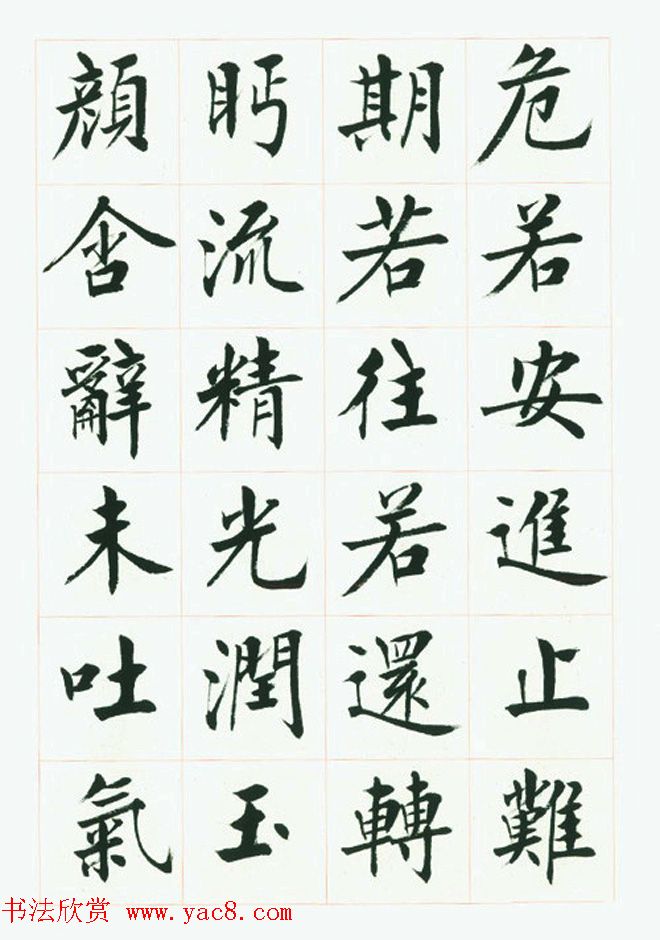 危若安進止難
期若往若還轉
眄流精光潤玉
顔含辭未吐氣
书法欣赏 www.yac8.com